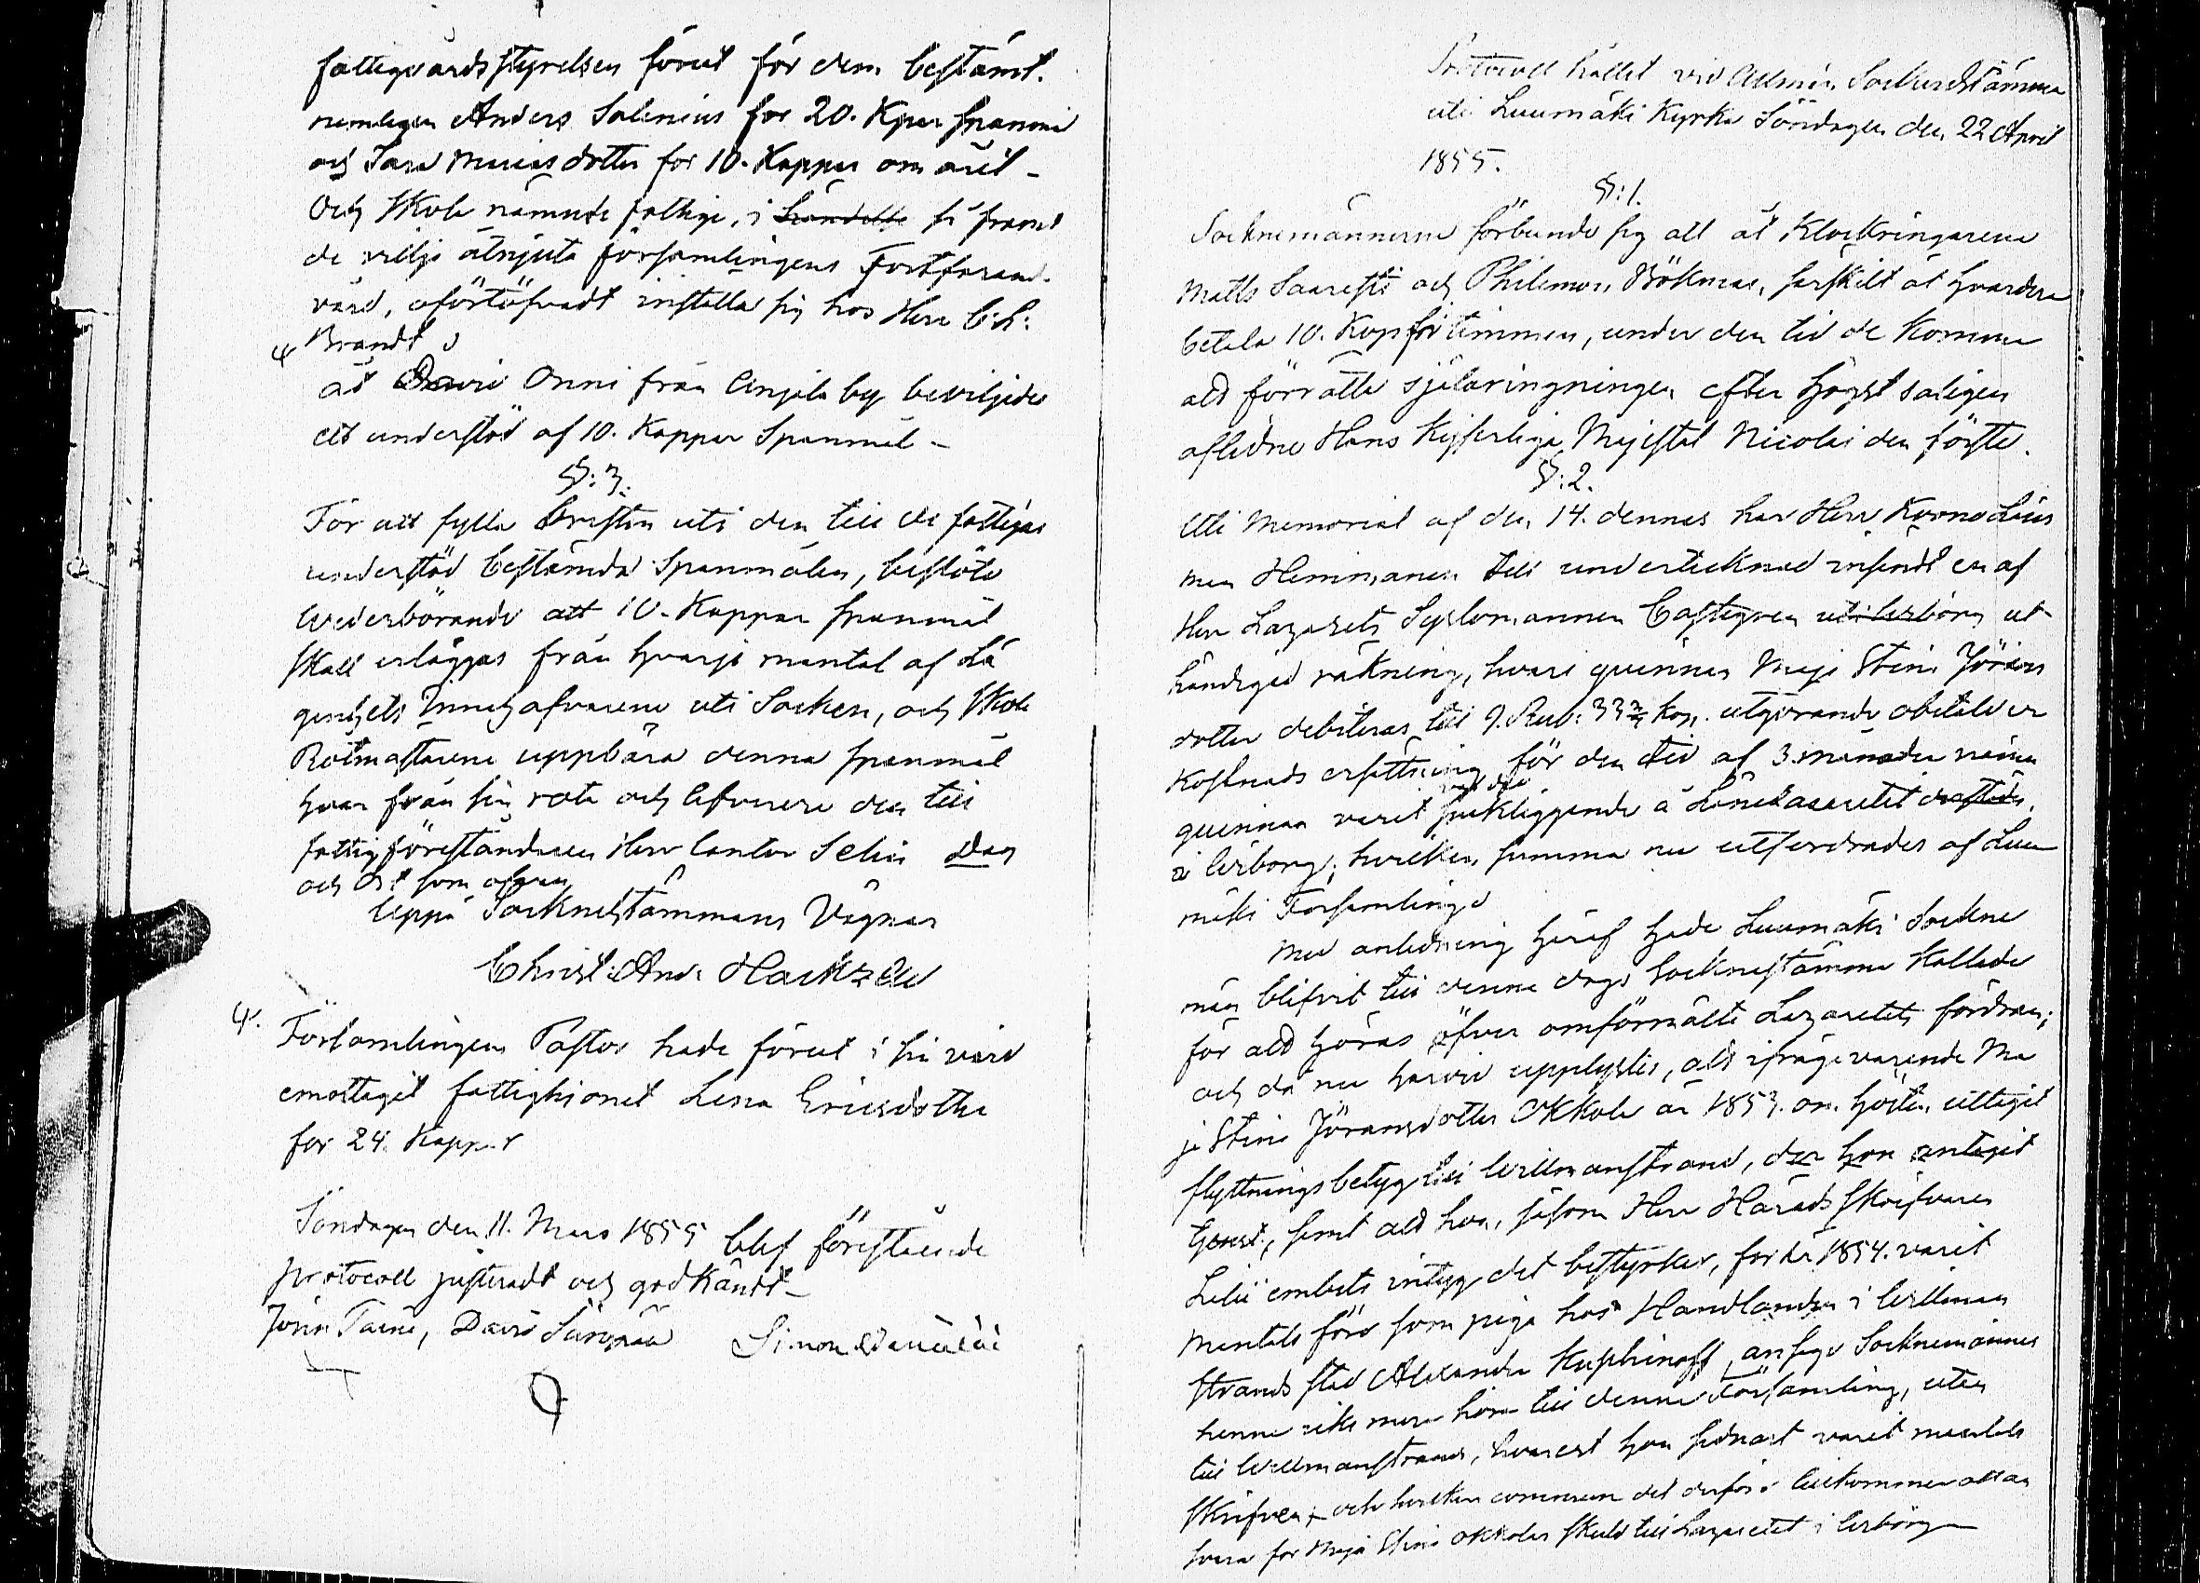 fattigvårdsstyrelsen förut för dem bestämt.
nemligen Anders Salenius for 20. Kpar spanmå
och Sara Mariasdotter for 10. Kappar om året -
Och skola nämnde fattige, i så framt
de vilja åtnjuta församlingens Fortfarand.
vård, ofördröfvadt inställa sig hos Herr C: L:
Brandt
åt David Onni från Anjala by beviljades
ett understöd af 10. Kappar Spanmål -
§: 3.
För att fylla bristen uti den till de fattigas
understöd bestämda Spanmålen, beslöto
wederbörande att 10. Kappar spanmål
skall erläggas från hvarje mantal af Lä
genhets Innehafvarene uti Socken, och skola
Rotmästarene uppbära denna spanmål
hvar från sin rote och lefverera den till
fattigföreståndaren Herr Cantor Selin Dag
och Ort som ofvan
Uppå Sockneståmmans Vägnar
Christ: And: Hackzell
4. Församlingens Pastor hade förut i sin vård
emottagit fattighionet Lena Ericsdotter
for 24. Kappar
Söndagen den 11. Mars 1855 blef förestående
protocoll justeradt och godkändt -
David Simon
Protocoll hållet vid Allmän Socknestämma
uti Luumäki Kyrka Söndagen den 22 April
1855.
§: 1.
Socknemännerne förbundo sig att åt Klockringarena
Matts Saaresti och Philemon Bökman, särskilt åt hvardera
betala 10. Kop för timmen, under den tid de komma
att förrätta sjelaringningen efter högst salige
aflidne Hans Kejserliga Majestät Nicolai den förste.
§: 2.
Uti Memorial af den 14. dennes har Herr Krono Läns
man Hemmanen till undertecknad insändt en af
Herr Lazarets Sysslomannen Castegren ut
händigad räkning, hvari quinnan Maja Stina Jörans
dotter debiteras till 9. Rub: 33 kop. utgörande obetald
kostnads ersättning för den tid af 3 månader
quinnan varit sjukliggande å Länelazarettet
i Wiborg, hvilken summa nu utfordrades af Luu
mäki Församling
Med anledning häraf hade Luumäki Sockne
män blifvit till denne dags Socknestämma kallade
för att höras öfver omförmälte Lazaretts fordran;
och då nu härvid upplystes, att ifrågavarande Ma
ja Stina Jöransdotter Okkola år 1853. om hösten uttagit
flyttningsbetyg till Willmanstrand, der hon antagit
tjenst, samt att hon, såsom Herr Härads Skrifvaren
Lilii embets intyg det bestyrker, for år 1854. varit
Mantals förd som piga hos Handlanden i Willman
strands stad Alexander Kuschinoff, ansågo Socknemännen
henne icke mera höra till denna Församling, utan
till Willmanstrand, hvarest hon sednast varit mantals
skrifven och hvilken commun det derföre tillkommer att an
svara för Maja Stina Okkolas skuld till Lazarettet i Wiborg